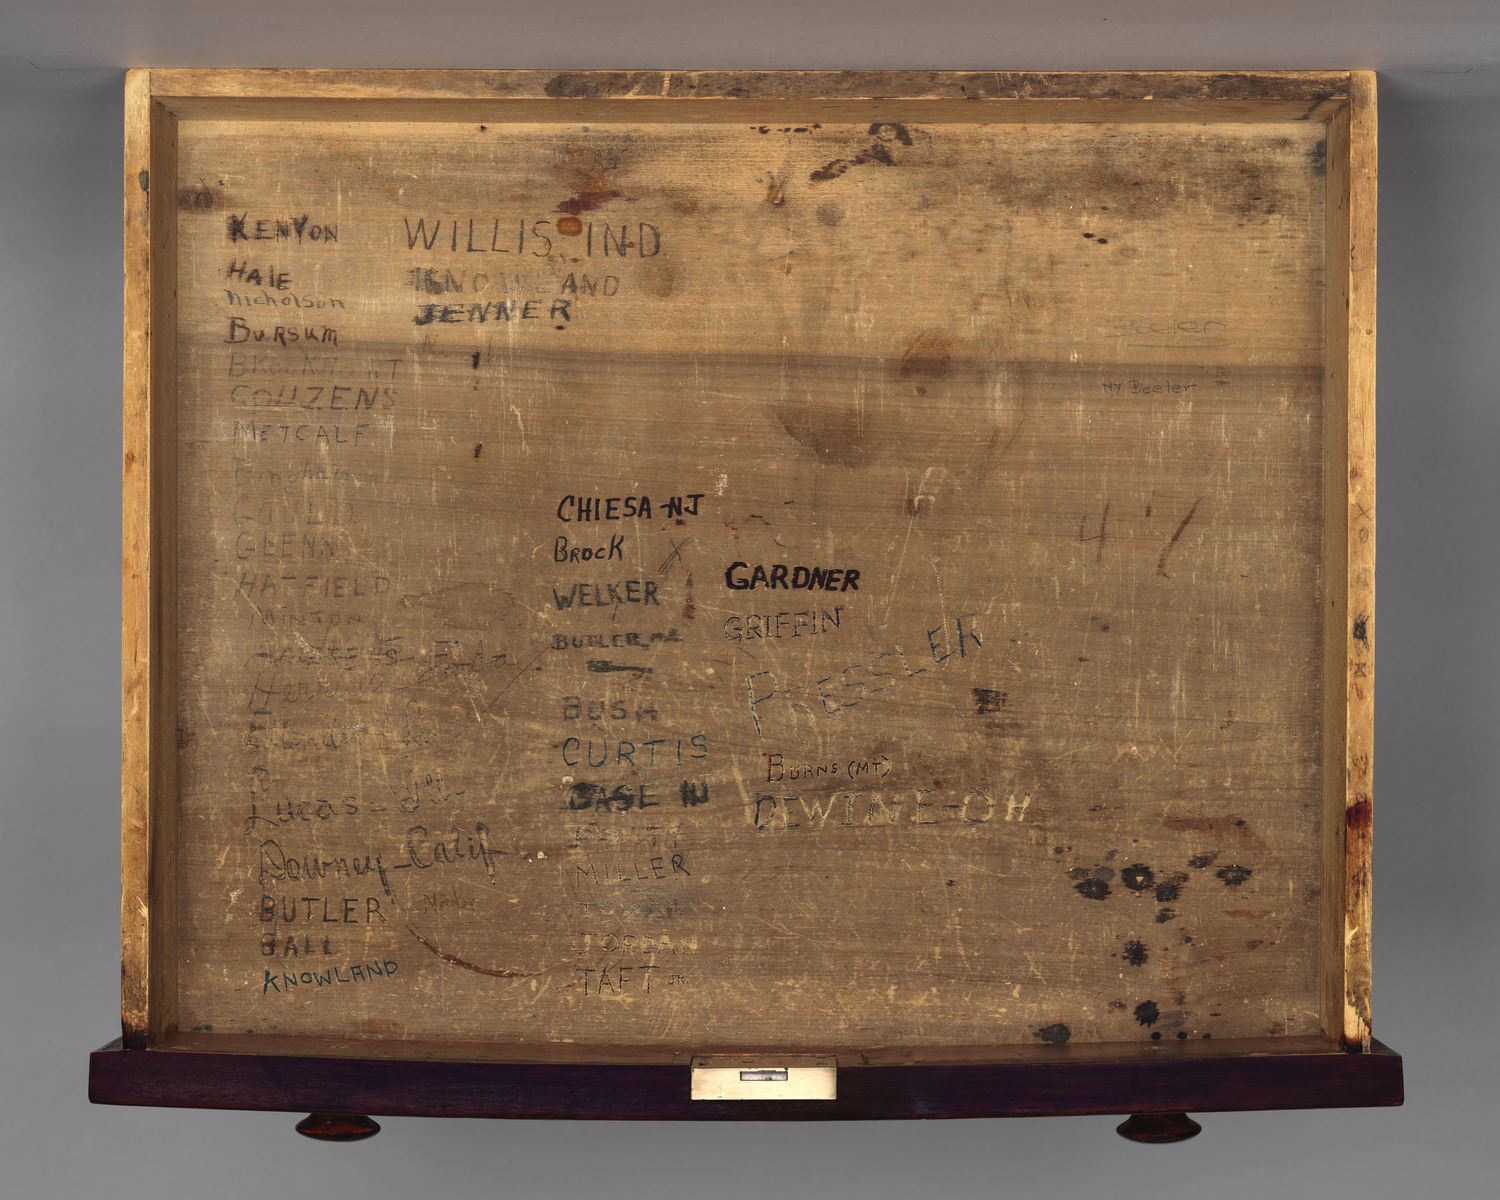 KENYON
HALE
Nicholson
BURSUM
BROOKHART
COUZENS
METCALF
Bingham
GOULD
GLENN
HATFIELD
MINTON
Fla
Lucas - Ill.
Downey - Calif
BUTLER
BALL
KNOWLAND
WILLIS IND.
KNOWLAND
JENNER
CHIESA - NJ
BROCK X
WELKER
BUTLER, MD.
BUSH
CURTIS
CASE NJ
MILLER
JORDAN
TAFT JR.
GARDNER
GRIFFIN
PRESSLER
BURNS (MT)
DEWINE - OH
Beeler
NY Beeler
47